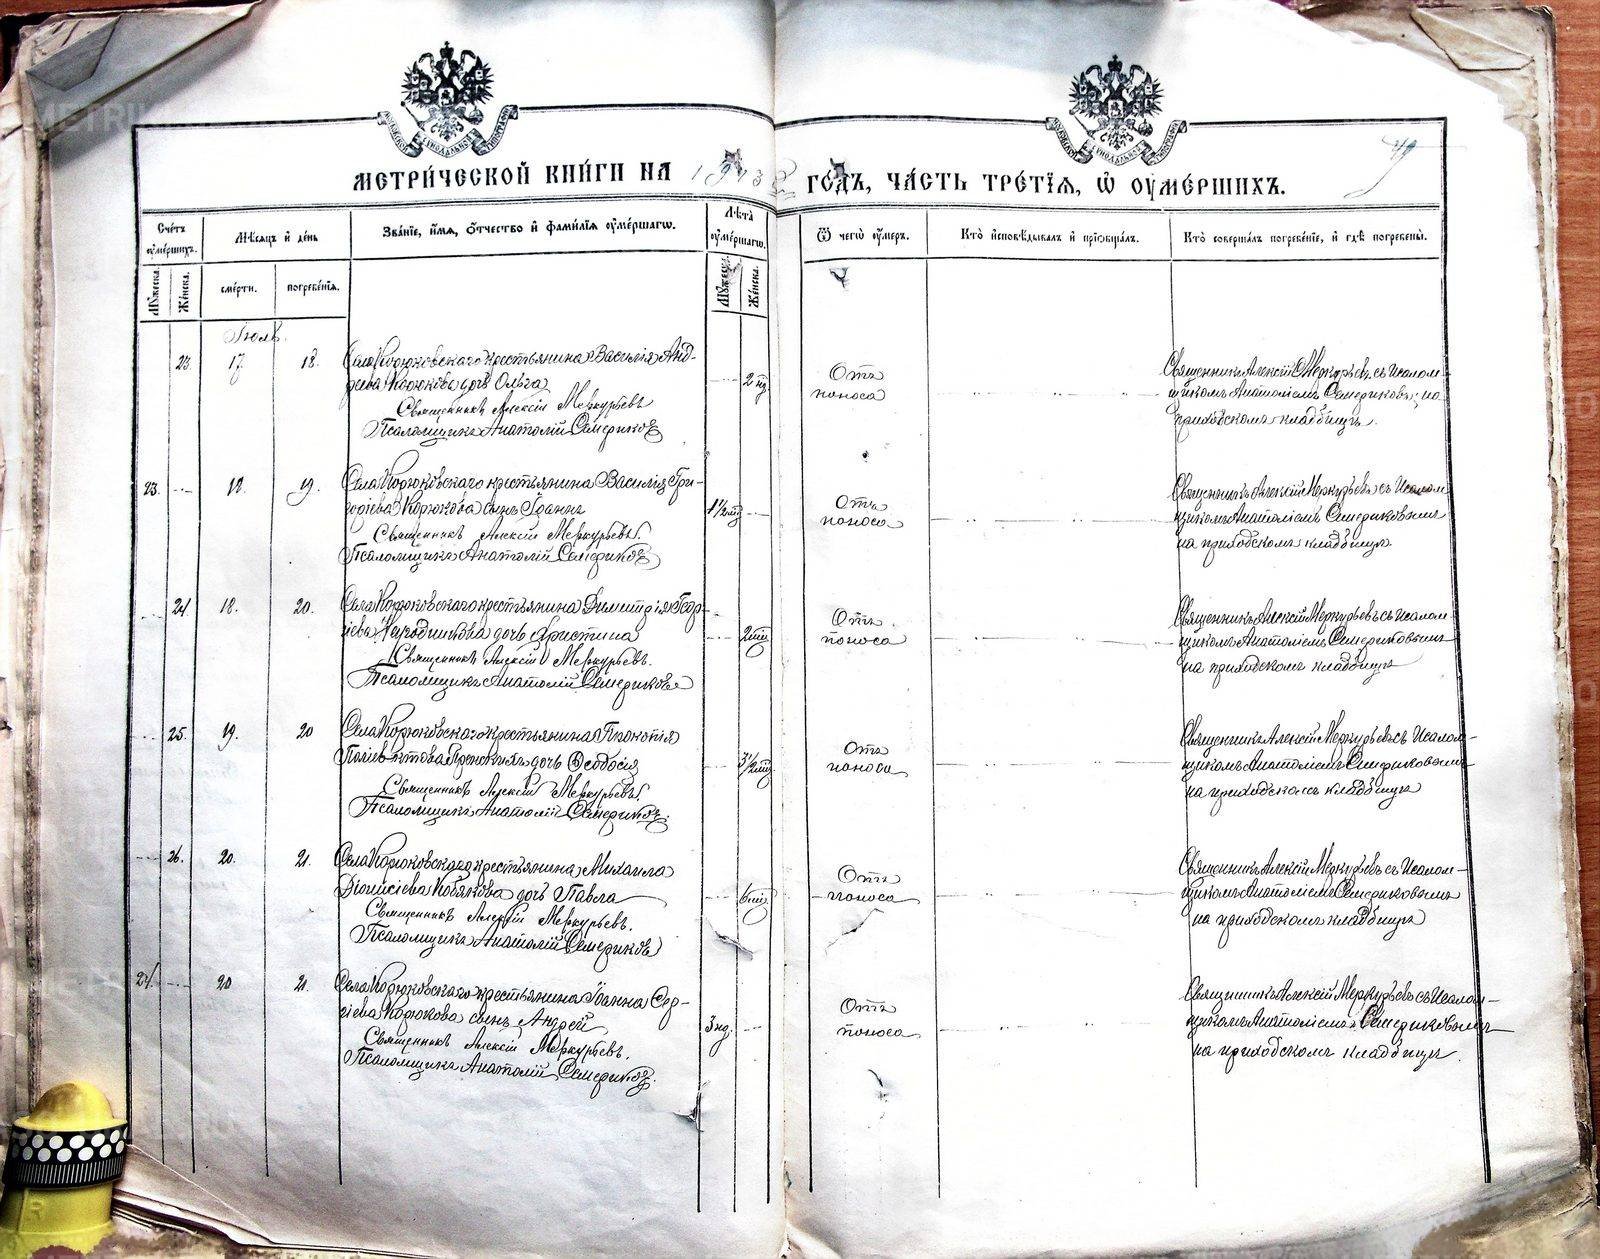 МЕТРИЧЕСКОЙ КНИГИ НА 19 ГОДЪ, ЧАСТЬ ТРЕТІЯ, Ѿ ОУМЕРШИХЪ.
Счетъ оумершихъ.
Мѣсяцъ и день
Званіе, имя, отчество и фамилія оумершагѡ.
Лѣта оумершагѡ.
Ѿ чегѡ оумеръ.
Кто исповѣдывалъ и пріобщалъ.
Кто совершалъ погребеніе, и гдѣ погребены.
Мужеска.
Женска.
смерти.
погребенія.
Мужеска.
Женска.
Іюль.
23. 17 18. Села Корюковскаго крестьянина Василія Анд-
реева Корюкова дочь Ольга
2 нд.
Священникъ Алексій Меркурьевъ
Псаломщикъ Анатолій Семериковъ
Отъ
поноса
Священникъ Алексій Меркурьевъ съ псалом-
щикомъ Анатоліемъ Семериковымъ, на
приходскомъ кладбищѣ.
23. 18. 19. Села Корюковскаго крестьянина Василія Гри-
горіева Корюкова сынъ Іоаннъ
1½ мц
Священникъ Алексій Меркурьевъ.
Псаломщикъ Анатолій Семериковъ
Отъ
поноса
Священникъ Алексій Меркурьевъ съ псалом
щикомъ Анатоліемъ Семериковымъ
на приходскомъ кладбищѣ.
24. 18. 20. Села Корюковскаго крестьянина Димитрія Геор-
гіева дочь Христина
2 мц
Священникъ Алексій Меркурьевъ.
Псаломщикъ Анатолій Семериковъ
Отъ
поноса
Священникъ Алексій Меркурьевъ съ псалом
щикомъ Анатоліемъ Семериковымъ
на приходскомъ кладбищѣ
25. 19. 20 Села Корюковскаго крестьянина Прокопія
дочь Ѳеодосія
3½ мц
Священникъ Алексій Меркурьевъ.
Псаломщикъ Анатолій Семериковъ.
Отъ
поноса
Священникъ Алексій Меркурьевъ съ псалом-
щикомъ Анатоліемъ Семериковымъ
на приходскомъ кладбищѣ
26. 20. 21. Села Корюковскаго крестьянина Михаила
Діонисіева Кобякова дочь Павла
Священникъ Алексій Меркурьевъ.
Псаломщикъ Анатолій Семериковъ
Отъ
поноса
Священникъ Алексій Меркурьевъ съ псалом-
щикомъ Анатоліемъ Семериковымъ
на приходскомъ кладбищѣ
24. 20 21. Села Корюковскаго крестьянина Іоанна Сер-
гіева Корюкова сынъ Андрей
3 нд.
Священникъ Алексій Меркурьевъ.
Псаломщикъ Анатолій Семериковъ.
Отъ
поноса
Священникъ Алексій Меркурьевъ съ псалом-
щикомъ Анатоліемъ Семериковымъ
на приходскомъ кладбищѣ.